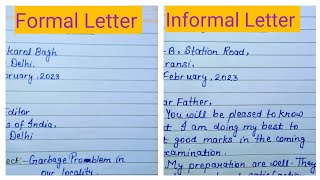 Formal Letter
karnl Bagh
Delhi.
bruary, 2023
Editor
s of India,
Delhi
ect:- Garbage Problem in
our locality.
Informal Letter
-B, Station Road,
ransi.
February, 2023
ar Father,
You will be pleased to know
t I am doing my best to
good marks in the coming
xamination.
My preparation are well. They